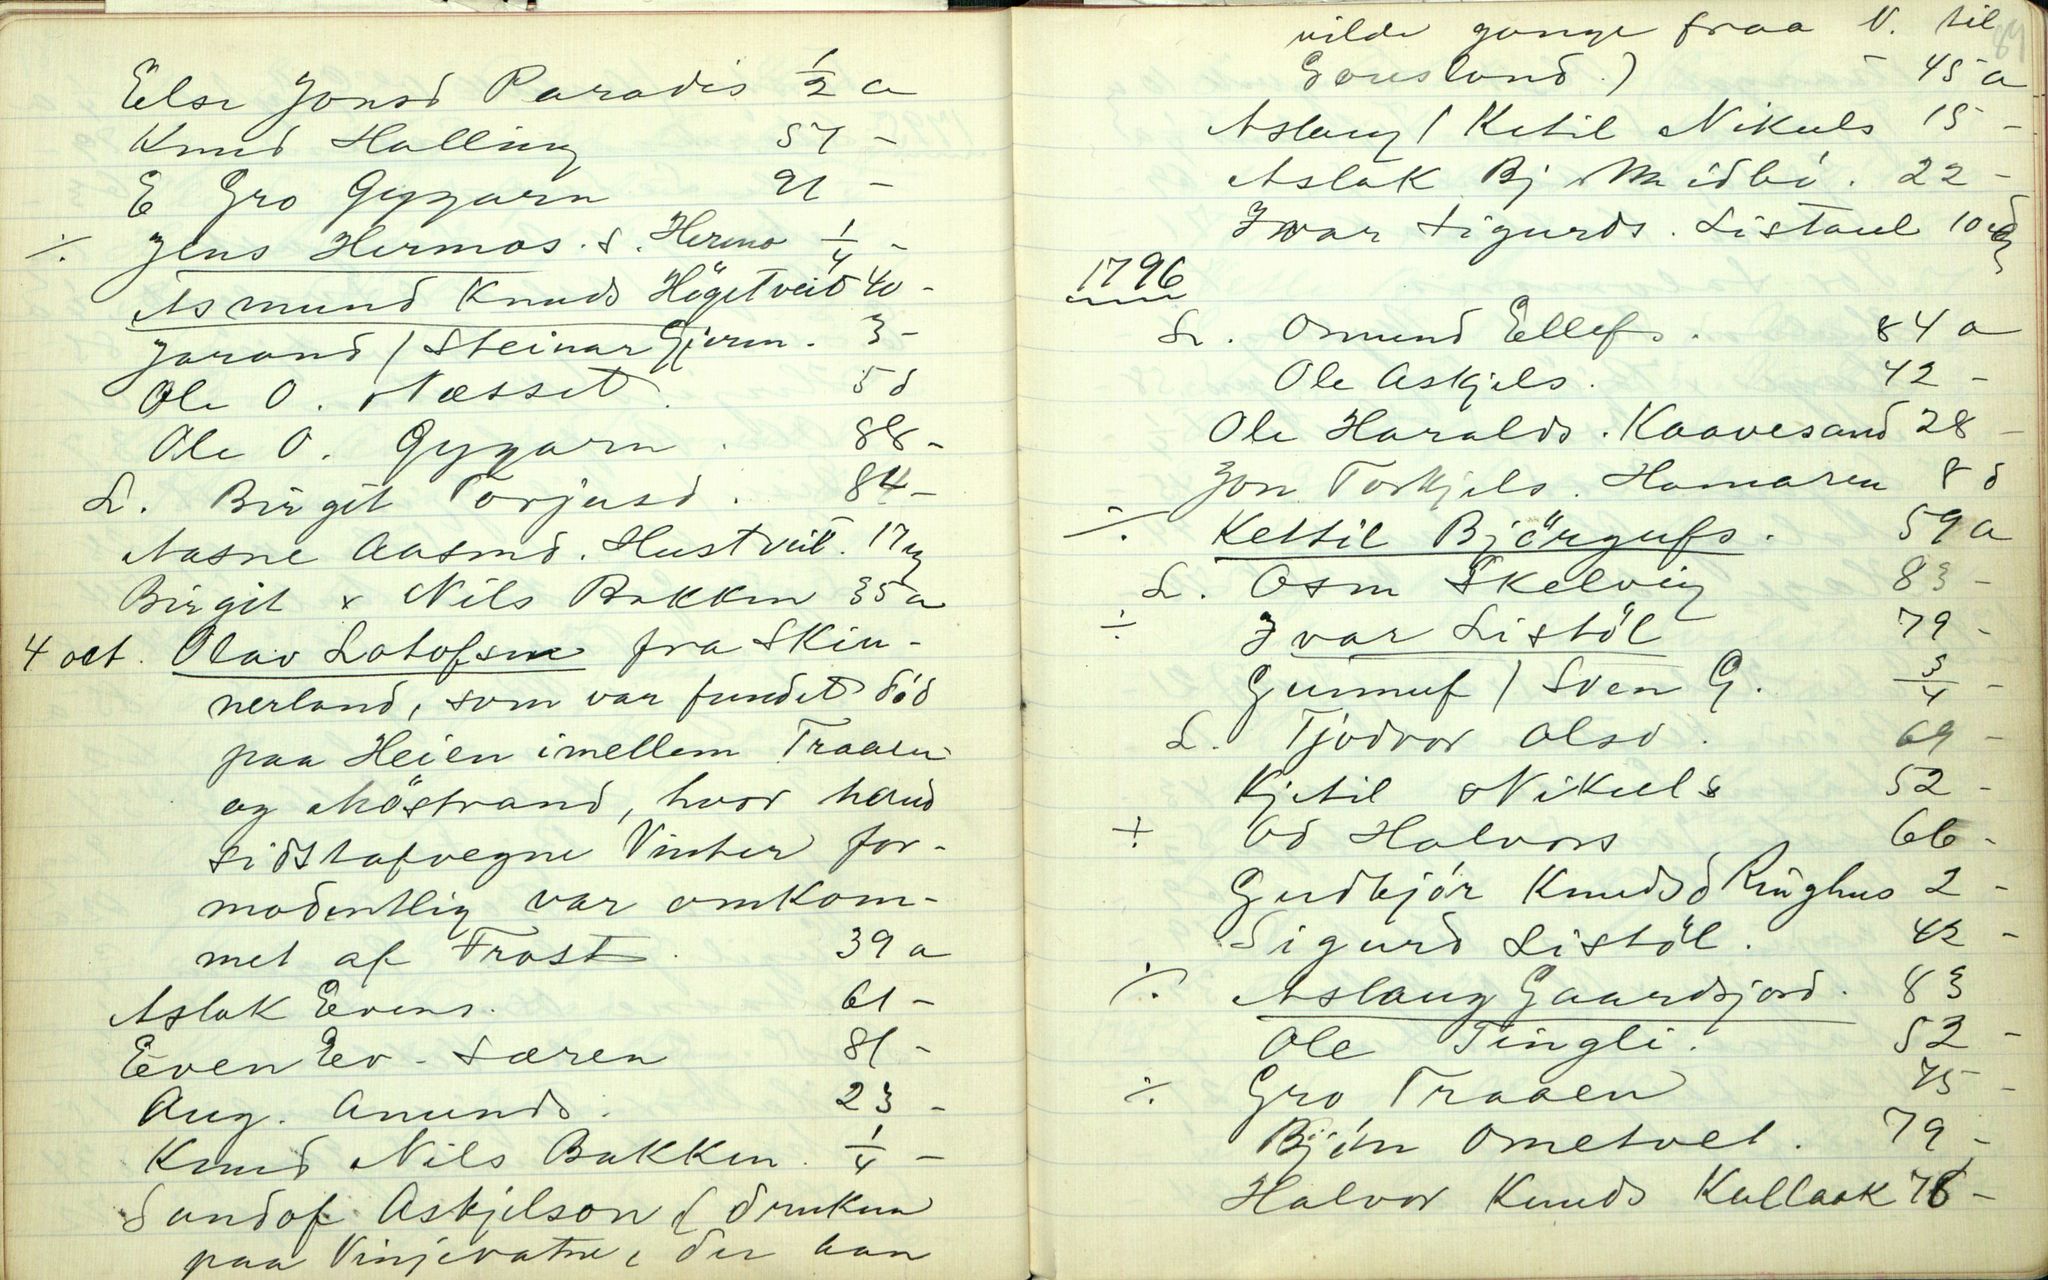 Else Jonsd Paradis 1/2 a
Knud Halling 57 -
E Gro Gygarn 91 -
./. Jens Hermos. s. Hermo 1/4 -
Asmund Knuds Högetveit 40 -
Jarand / Steinar Gjuren. 3 -
Ole O. Næsset. 5 d
Ole O. Gygarn. 88 -
L. Birgit Torjusd. 84 -
Aasne Aasmd. Hustveit. 17 u
Birgit x Nils Bakken 35 a
4 oct. Olav Lotofsen fra Skin-
nerland, som var fundet död
paa Heien imellem Traaen
og Möstrand, hvor hand
sidstafvegne Vinter for-
modentlig var omkom-
met af Frost. 39 a
Aslak Evens. 61 -
Even Ev - Særen 81 -
Aug. Anunds. 23 -
Knud Nils Bakken. 1/4 -
Sondof Askjelson (druknu
paa Vinjevatne, der han
84
vilde gange fraa V. til
Gouslond.) - 45 a
Aslaug / Ketil Nikuls 15 -
Aslak Bj Midbö. 22 -
Ivar Sigurds. Listaul 10
1796
L. Osmund Ellefs. 84 a
Ole Askjels. 42 -
Ole Haralds. Kaavesand 28 -
Jon Torkjels. Hamaren 8 d
./. Kettil Björgufs. 59 a
L. Osm Skelvig 83 -
÷ Ivar Listöl 79 -
Gunnuf / Sven G. 3/4 -
L. Tjodvor Olsd. 69 -
Kjetil Nikuls 52 -
÷ Od Halvors 66 -
Gudbjör Knudsd Ringhus 2 -
Sigurd Listöl. 42 -
./. Aslaug Gaardsjord. 83
Ole Tingli. 52 -
./. Gro Traaen 75 -
Björn Ometvet. 79 -
Halvor Knuds Kullaak 78 -